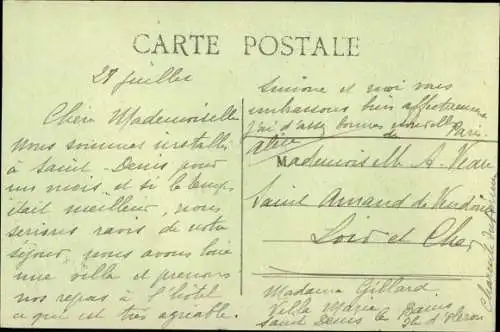 CARTE POSTALE
28 juillet
Chère Mademoiselle
Nous sommes installés
à Saint-Denis pour
un mois, et si le temps
était meilleur, nous
serions ravis de notre
séjour, nous avons loué
une villa et prenons
nos repas à l'hôtel
ce qui est très agréable.
Simone et moi vous
embrassons bien affectueuse
j'ai d'assez bonnes nouvelles de Paris.
Mademoiselle A.
Saint Amand de Vendôme
Loir et Cher
Madame Gillard
Villa Maria
Saint Denis les Bains
Ile d'Oléron